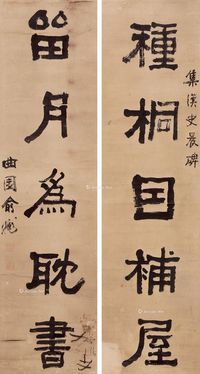 集漢史晨碑
種桐因補屋
留月爲耽書
曲園俞樾